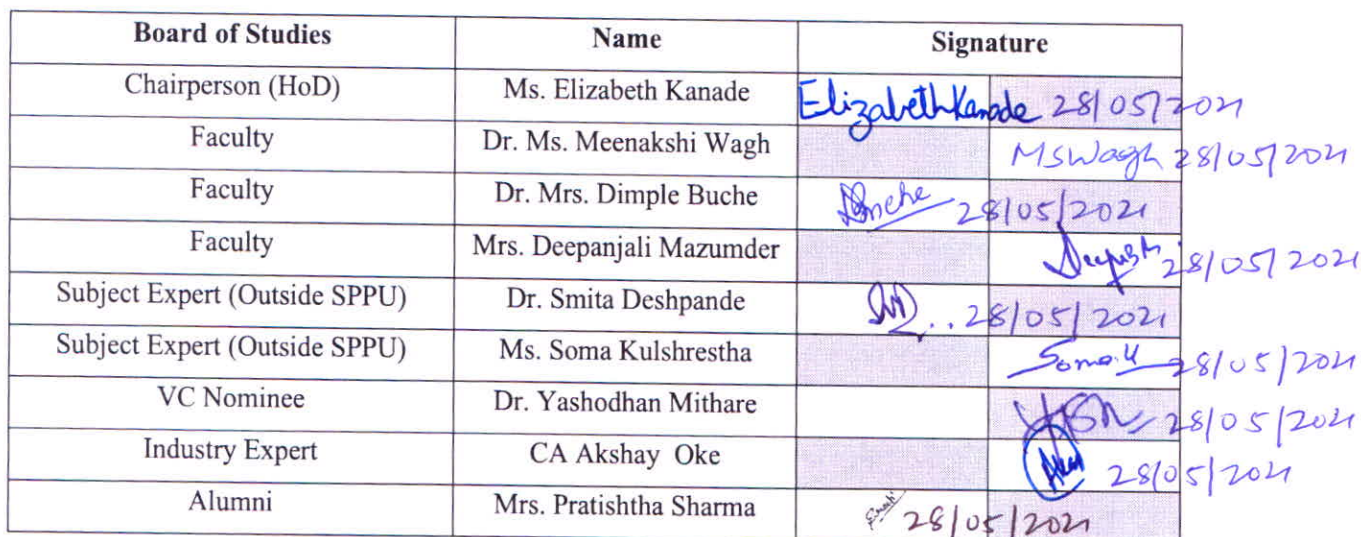 Board of Studies Name Signature
Chairperson (HoD) Ms. Elizabeth Kanade Elizabeth Kanade 28/05/2021
Faculty Dr. Ms. Meenakshi Wagh MSWagh 28/05/2021
Faculty Dr. Mrs. Dimple Buche 28/05/2021
Faculty Mrs. Deepanjali Mazumder 28/05/2021
Subject Expert (Outside SPPU) Dr. Smita Deshpande 28/05/2021
Subject Expert (Outside SPPU) Ms. Soma Kulshrestha 28/05/2021
VC Nominee Dr. Yashodhan Mithare 28/05/2021
Industry Expert CA Akshay Oke 28/05/2021
Alumni Mrs. Pratishtha Sharma 28/05/2021